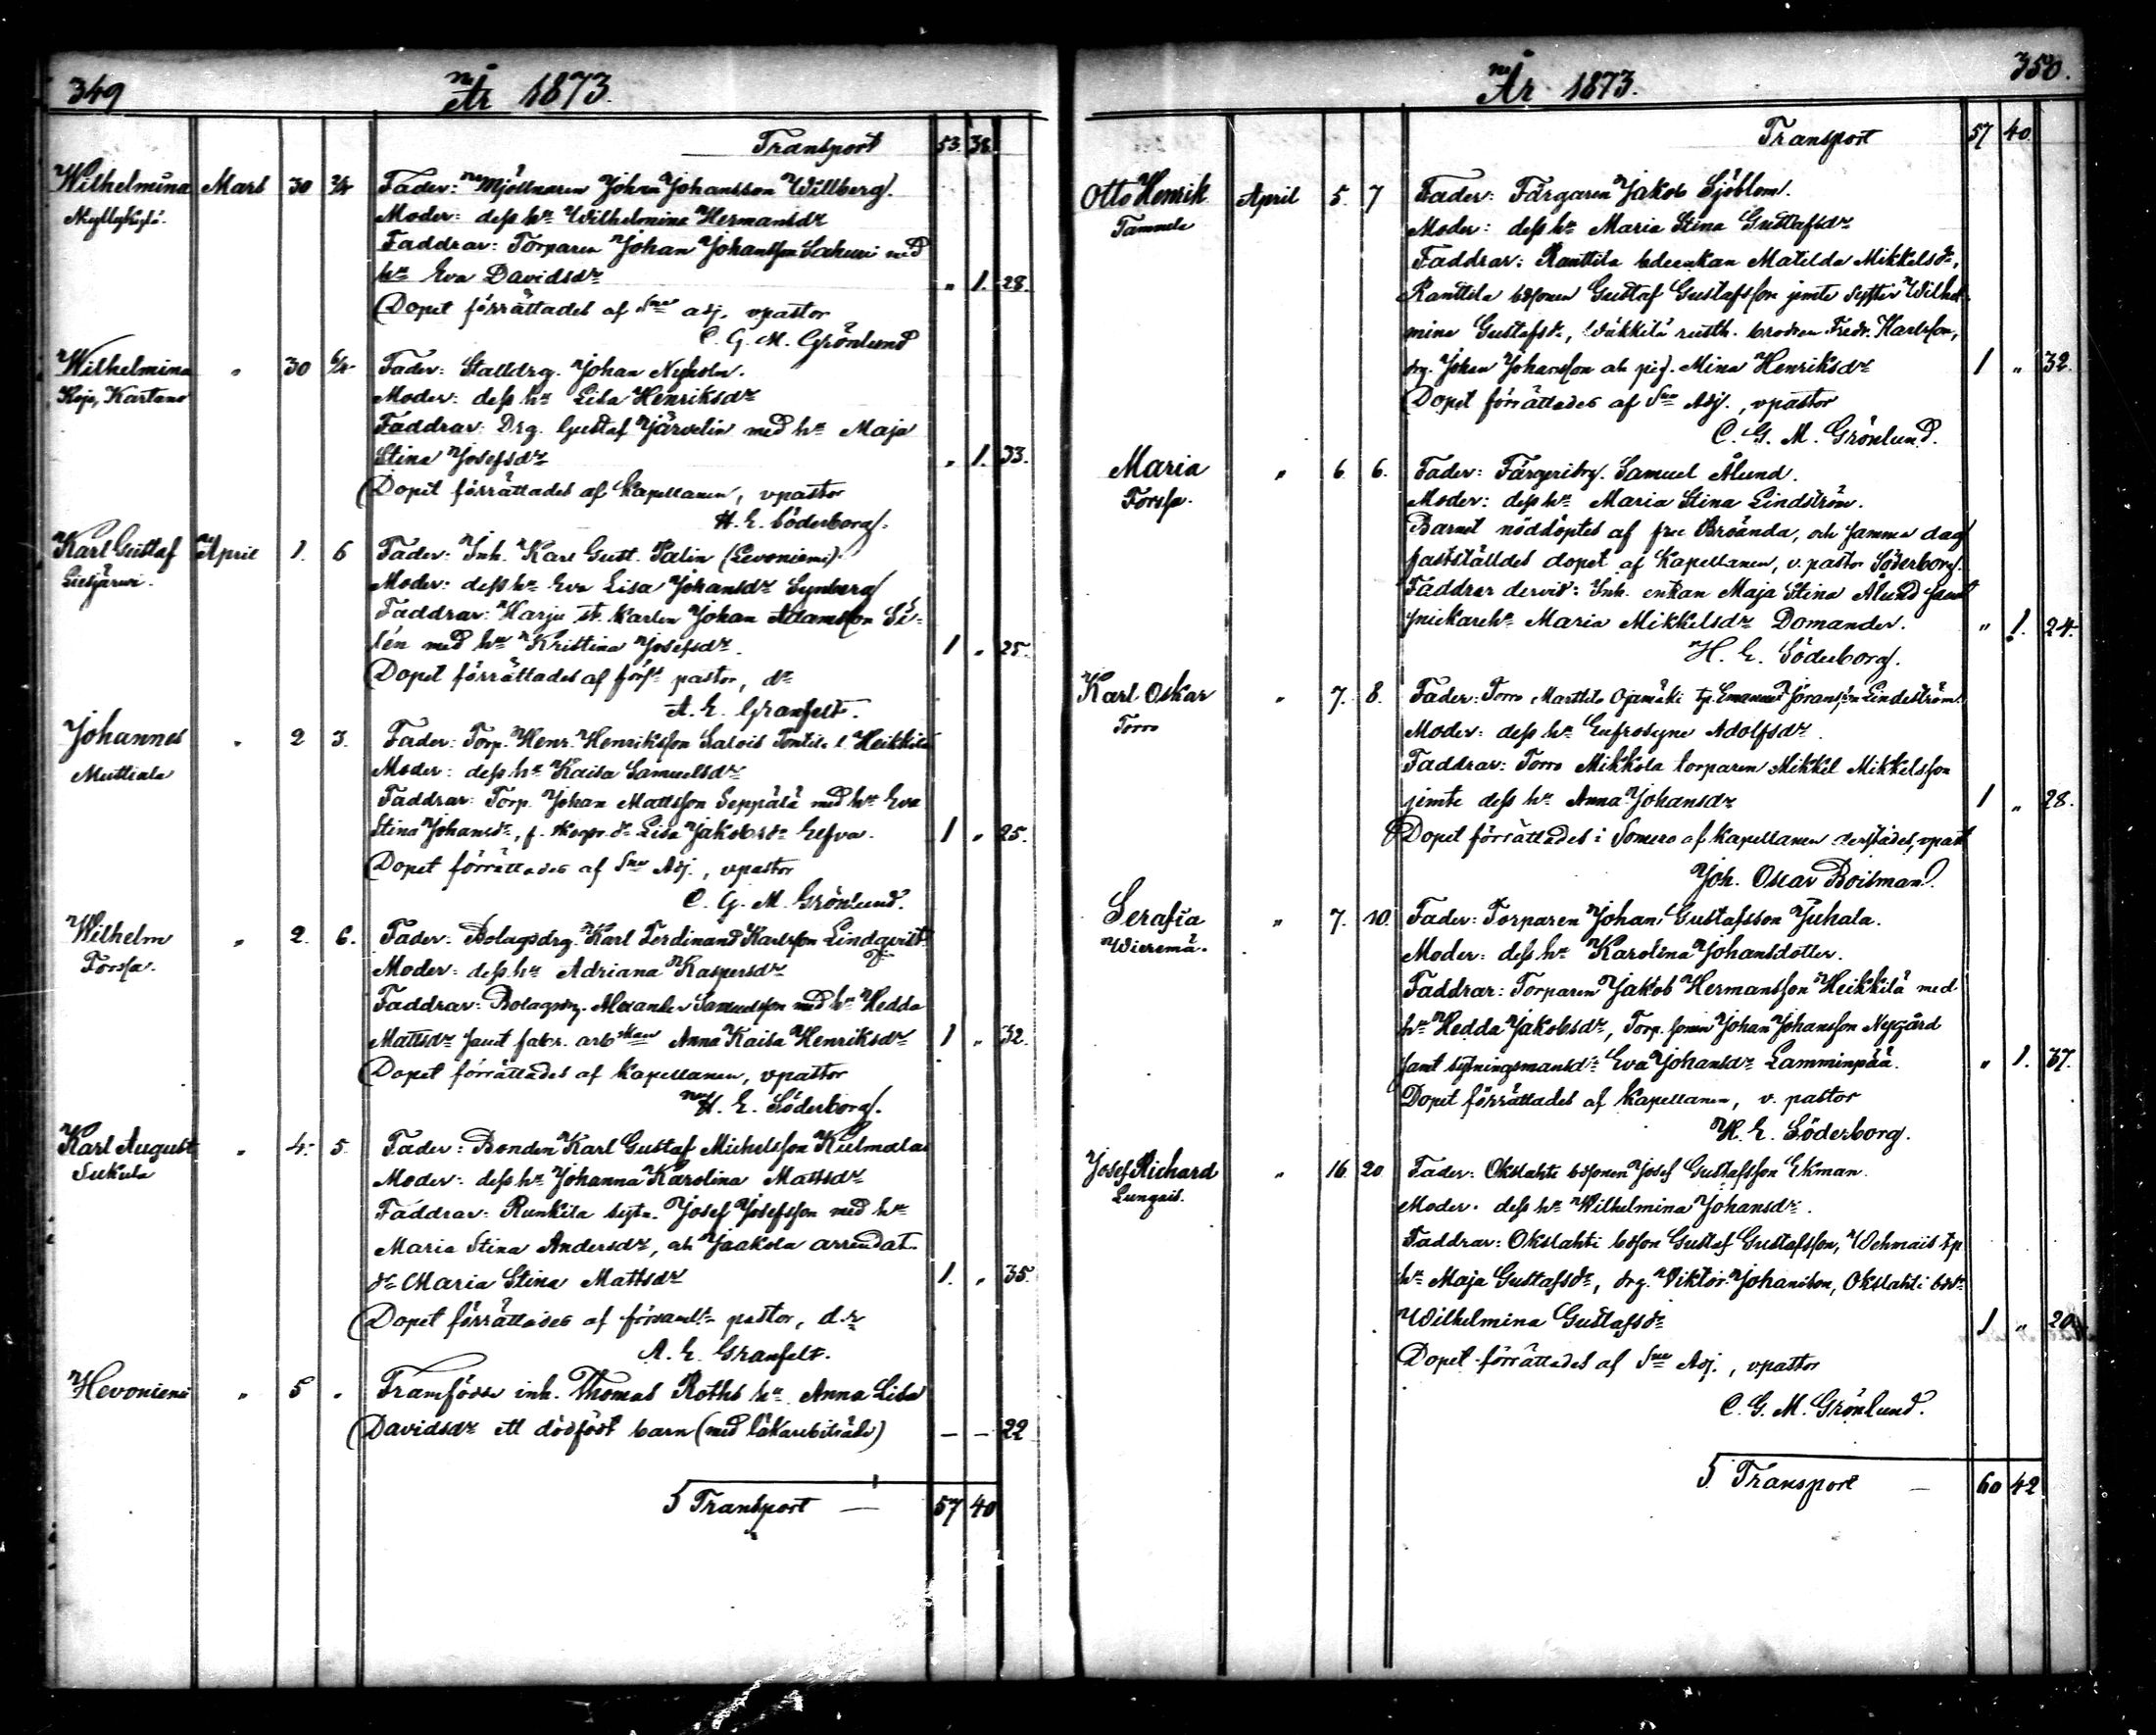 349
År 1873.
Transport 53. 38.
Wilhelmina Mars 30 2/4 Fader: Mjölnaren Johan Johansson Willberg.
Moder: dess hu Wilhelmina Hermansdr
Faddrar: Torparen Johan Johansson Sakeus med
hu Eva Davidsdr „ 1. 28.
Dopet förrättades af Sne adj. vpastor
C. G. M. Grönlund
Wilhelmina „ 30 6/4 Fader: Stalldrg. Johan Nyholm.
Kojo, Kartano Moder: dess hu Lisa Henriksdr
Faddrar: Drg. Gustaf Järvelin med hu Maja
Stina Josefsdr „ 1. 33.
Dopet förrättades af Kapellanen, vpastor
H. E. Söderborg.
Karl Gustaf April 1. 6 Fader: Inh. Karl Gust. Palin (Levoniemi).
Liesjärwi. Moder: dess hu Eva Lisa Johansdr Lynberg
Faddrar: Harju st. karlen Johan Adamsson Si-
lén med hu Kristina Josefsdr. 1 „ 25.
Dopet förrättades af förs. pastor, dr
A. E. Granfelt.
Johannes „ 2 3. Fader: Torp. Henr. Henriksson Salois Tontila l. Heikkilä
Mustiala Moder: dess hu Kaisa Samuelsdr
Faddrar: Torp. Johan Mattsson Seppälä med hu Eva
Stina Johansdr, f. skepr. dr Lisa Jakobsdr Elfva. 1 „ 25.
Dopet förrättades af Sne Adj., vpastor
C. G. M. Grönlund.
Wilhelm „ 2. 6. Fader: Bolagsdrg. Karl Ferdinand Karlsson Lindqvist
Forssa. Moder: dess hu Adriana Kaspersdr
Faddrar: Bolagsdrg. Alexander Samuelsson med hu Hedda
Mattsdr samt fabr. arb. Anna Kaisa Henriksdr 1 „ 32.
Dopet förrättades af Kapellanen, vpastor
H. E. Söderborg.
Karl August „ 4. 5. Fader: Bonden Karl Gustaf Michelsson Kulmala
Sukula Moder: dess hu Johanna Karolina Mattsdr
Faddrar: Runkila sytn. Josef Josefsson med hu
Maria Stina Andersdr, och Jaakola arrendat.
dr Maria Stina Mattsdr 1. „ 35.
Dopet förrättades af församl. pastor, dr
A. E. Granfelt.
Hevoniemi „ 5 „ Framfödde inh. Thomas Roths hu Anna Lisa
Davidsdr ett dödfödt barn (med läkarebiträde) — — 22
5 Transport — 57 40
350.
År 1873.
Transport 57 40
Otto Henrik April 5. 7 Fader: Färgaren Jakob Sjöblom.
Tammela Moder: dess hu Maria Stina Gustafsdr
Faddrar: Ranttila bdeenkan Matilda Mikkelsdr,
Ranttila bdsonen Gustaf Gustafsson jemte syster Wilhel-
mina Gustafsdr, Wäkkilä rusth. brodren Fredr. Karlsson,
drg. Johan Johansson och pig. Mina Henriksdr 1 „ 32.
Dopet förrättades af Sne Adj., vpastor
C. G. M. Grönlund.
Maria „ 6 6. Fader: Färgeridrg. Samuel Ålund.
Forssa. Moder: dess hu Maria Stina Lindström.
Barnet nöddöptes af fru Broända, och samma dag
fastställdes dopet af Kapellanen, v. pastor Söderborg.
Faddrar dervid: Inh. enkan Maja Stina Ålund samt
snickarehu Maria Mikkelsdr Domander. „ 1. 24.
H. E. Söderborg.
Karl Oskar „ 7. 8. Fader: Torro Marttila Ojamäki tp. Emanuel Göransson Lindeström.
Torro Moder: dess hu Eufrosyne Adolfsdr.
Faddrar: Torro Mikkola torparen Mikkel Mikkelsson
jemte dess hu Anna Johansdr 1 „ 28.
Dopet förrättades i Somero af kapellanen derstädes, vpast
Joh. Oscar Boisman.
Serafia „ 7. 10. Fader: Torparen Johan Gustafsson Juhala.
Wieremä. Moder: dess hu Karolina Johansdotter.
Faddrar: Torparen Jakob Hermansson Heikkilä med
hu Hedda Jakobsdr, Torp. sonen Johan Johansson Nygård
samt sytningsmansdr Eva Johansdr Lamminpää. „ 1. 37.
Dopet förrättades af kapellanen, v. pastor
H. E. Söderborg.
Josef Richard „ 16 20 Fader: Okslahti bdsonen Josef Gustafsson Ekman.
Lungais. Moder: dess hu Wilhelmina Johansdr.
Faddrar: Okslahti bdson Gustaf Gustafsson, Wehmais tp.
hu Maja Gustafsdr, drg. Viktor Johansson, Okslahti bdr
Wilhelmina Gustafsdr 1 „ 20
Dopet förrättades af Sne Adj., vpastor
C. G. M. Grönlund.
5 Transport — 60 42